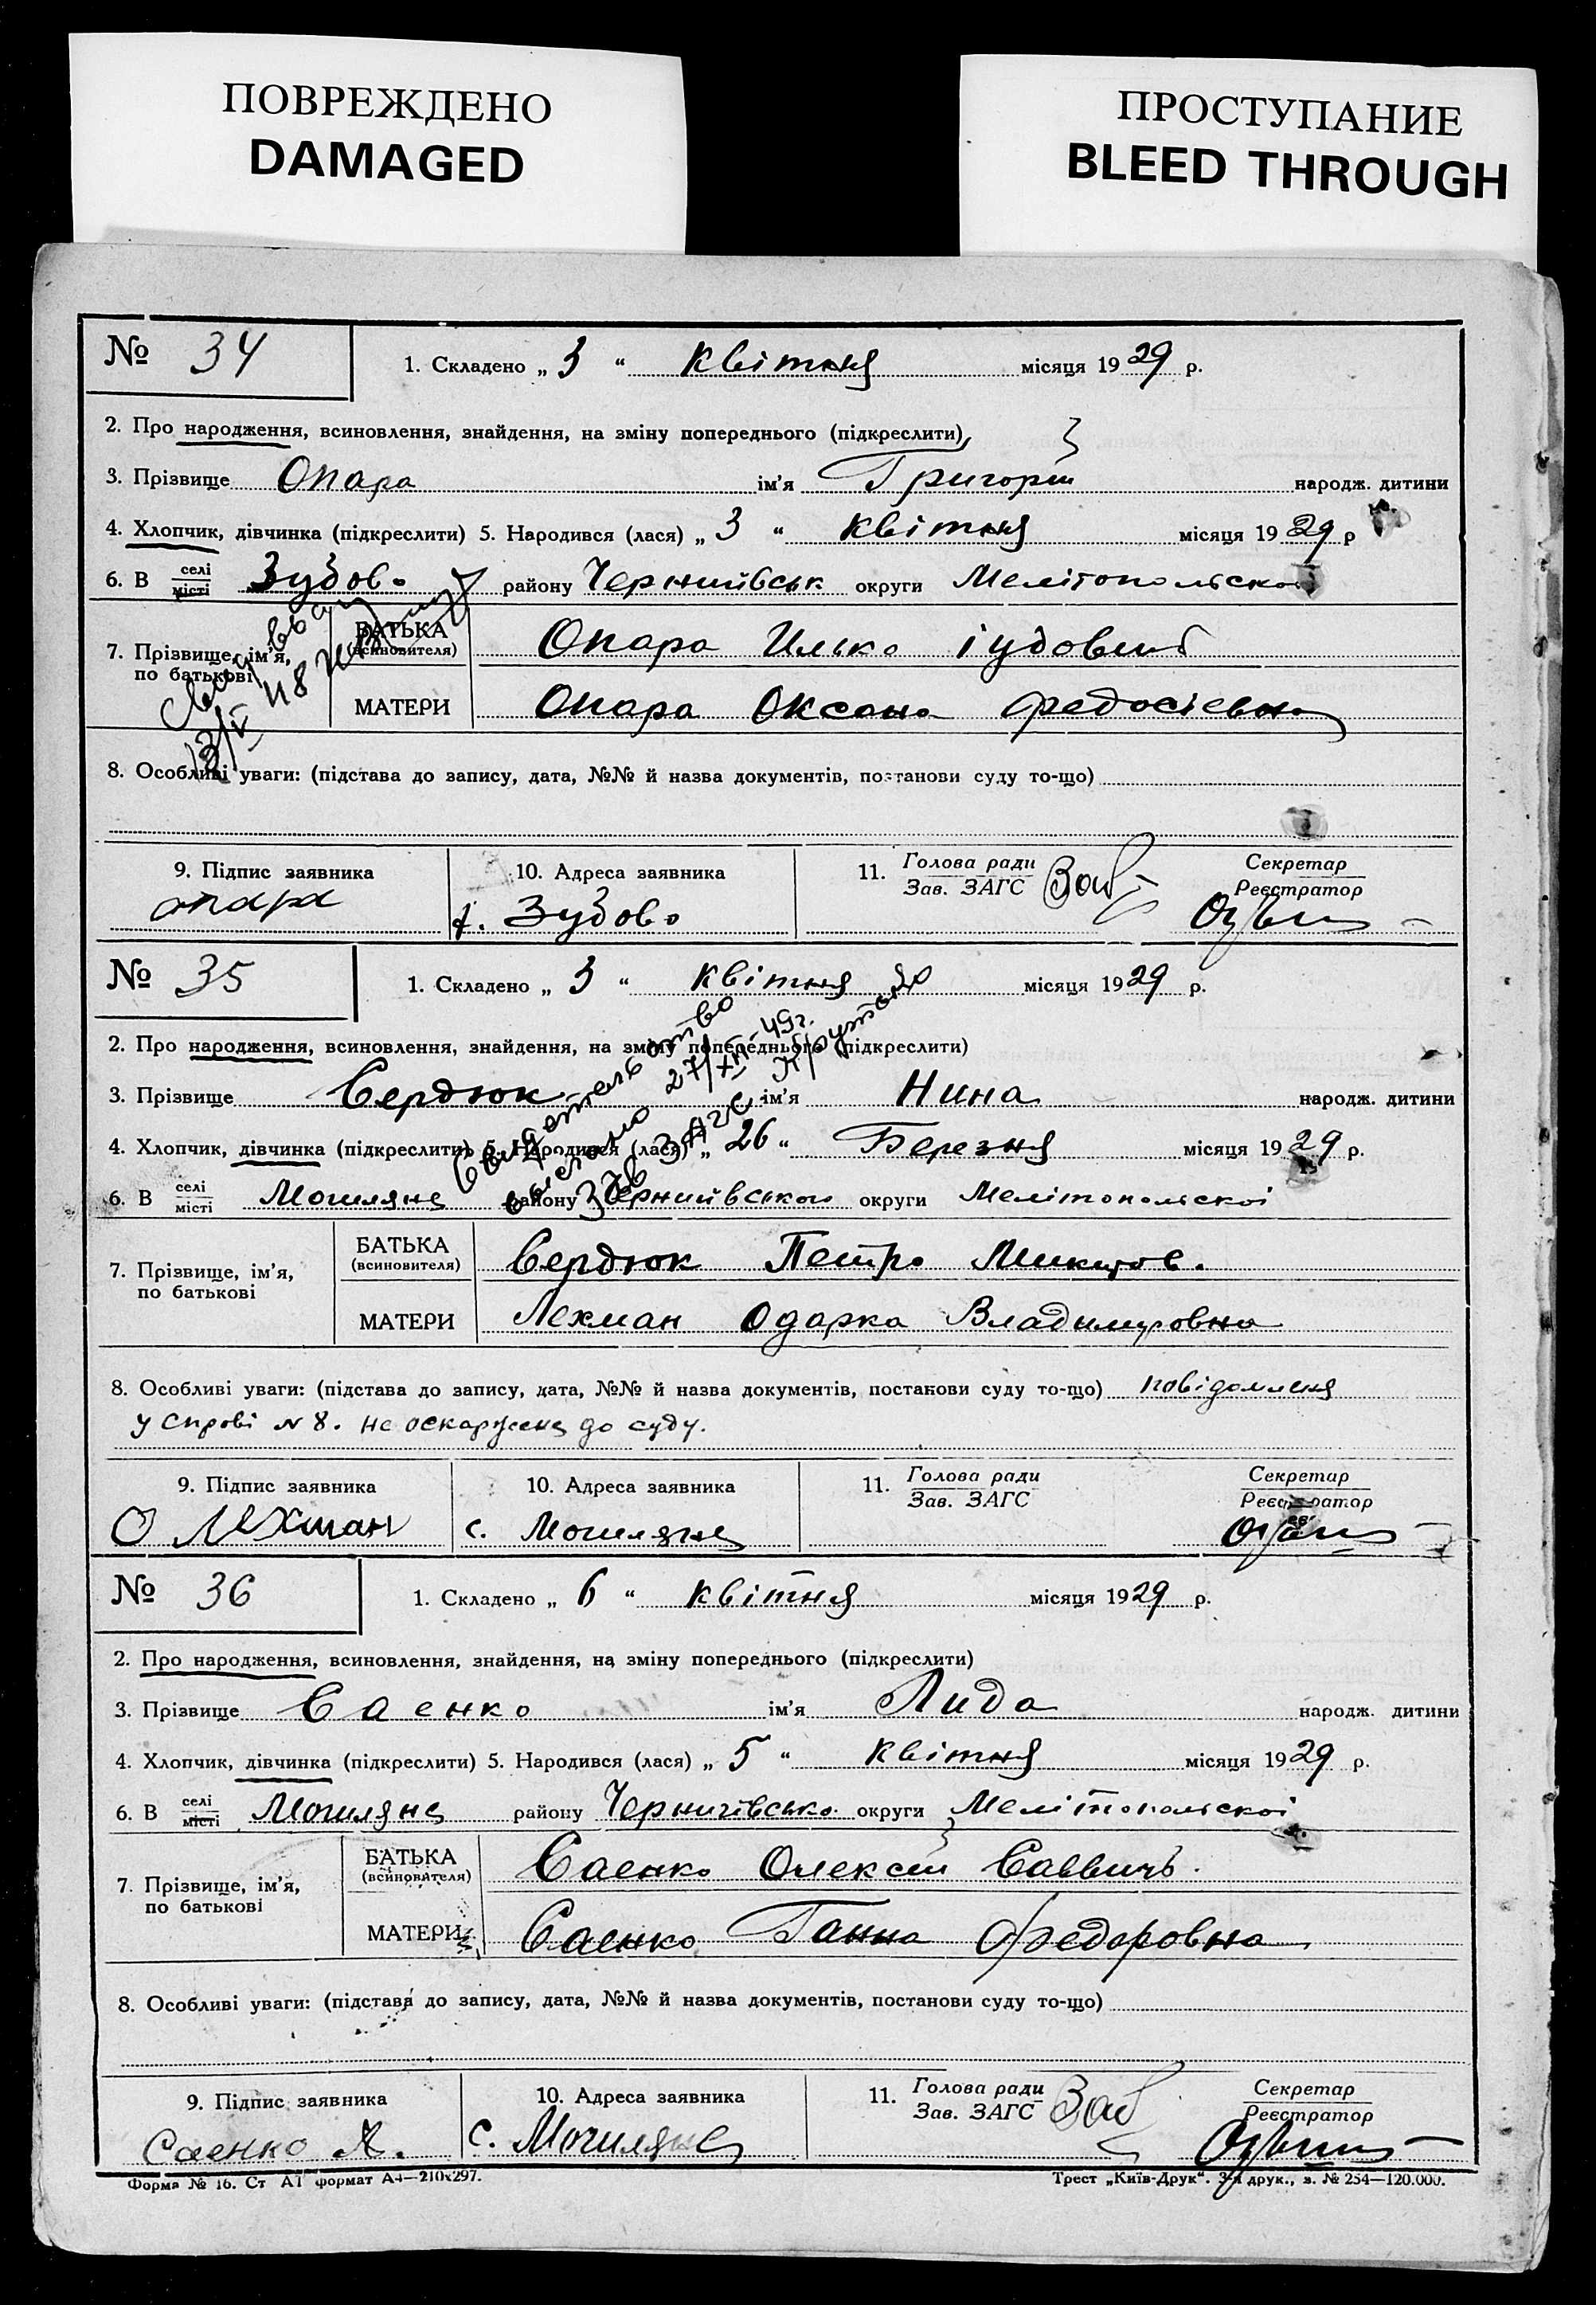 ПОВРЕЖДЕНО
DAMAGED
ПРОСТУПАНИЕ
BLEED THROUGH
№ 34
1. Складено „ 3 “ квітня місяця 1929 р.
2. Про народження, всиновлення, знайдення, на зміну попереднього (підкреслити)
3. Прізвище Опара ім'я Григорій народж. дитини
4. Хлопчик, дівчинка (підкреслити) 5. Народився (лася) „ 3 “ квітня місяця 1929 р
6. В селі місті Зубово району Чернигівськ округи Мелітопольскої
7. Прізвище, ім'я, по батькові
БАТЬКА (всиновителя) Опара Илько Іудович
МАТЕРИ Опара Оксана Федосієвна
8. Особливі уваги: (підстава до запису, дата, №№ й назва документів, постанови суду то-що)
9. Підпис заявника
10. Адреса заявника
11. Голова ради Зав. ЗАГС
Секретар Реєстратор
опара
х. Зубово
№ 35
1. Складено „ 3 “ квітня місяця 1929 р.
2. Про народження, всиновлення, знайдення, на зміну попереднього (підкреслити)
Свидетельство
выслано 27/XII-49г.
3. Прізвище Сердюк ім'я Нина народж. дитини
4. Хлопчик, дівчинка (підкреслити) 5. Народився (лася) „ 26 “ Березня місяця 1929 р.
6. В селі місті Могиляне району Чернигівського округи Мелітопольскої
7. Прізвище, ім'я, по батькові
БАТЬКА (всиновителя) Сердюк Петро Микитов.
МАТЕРИ Лехман Одарка Владимировна
8. Особливі уваги: (підстава до запису, дата, №№ й назва документів, постанови суду то-що) повідомленя
у справі № 8. не оскаржене до суду.
9. Підпис заявника
10. Адреса заявника
11. Голова ради Зав. ЗАГС
Секретар Реєстратор
О Лехман
с. Могиляне
№ 36
1. Складено „ 6 “ квітня місяця 1929 р.
2. Про народження, всиновлення, знайдення, на зміну попереднього (підкреслити)
3. Прізвище Саенко ім'я Лида народж. дитини
4. Хлопчик, дівчинка (підкреслити) 5. Народився (лася) „ 5 “ квітня місяця 1929 р.
6. В селі місті Могиляне району Чернигівсько округи Мелітопольскої
7. Прізвище, ім'я, по батькові
БАТЬКА (всиновителя) Саенко Олексій Саввичъ.
МАТЕРИ Саенко Ганна Федоровна
8. Особливі уваги: (підстава до запису, дата, №№ й назва документів, постанови суду то-що)
9. Підпис заявника
10. Адреса заявника
11. Голова ради Зав. ЗАГС
Секретар Реєстратор
Саенко А.
с. Могиляне
Форма № 16. Ст АТ формат А4—210х297.
Трест „Київ-Друк“. 3-я друк., з. № 254—120.000.